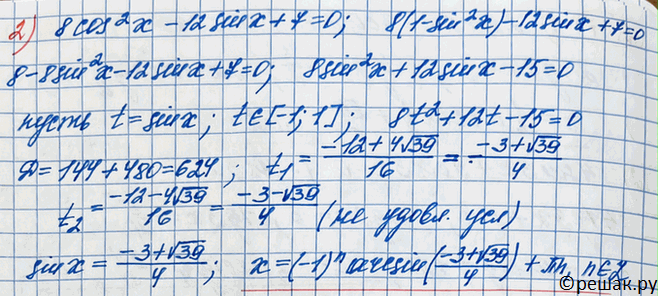 2) 8cos²x - 12sinx + 7 = 0; 8(1-sin²x) - 12sinx + 7 = 0
8 - 8sin²x - 12sinx + 7 = 0; 8sin²x + 12sinx - 15 = 0
пусть t = sinx; t∈[-1; 1]; 8t² + 12t - 15 = 0
Д = 144 + 480 = 624; t₁ = (-12 + 4√39)/16 = (-3 + √39)/4
t₂ = (-12 - 4√39)/16 = (-3 - √39)/4 (не удовл. усл)
sinx = (-3 + √39)/4; x = (-1)ⁿ arcsin((-3 + √39)/4) + πn, n∈Z
©решак.ру